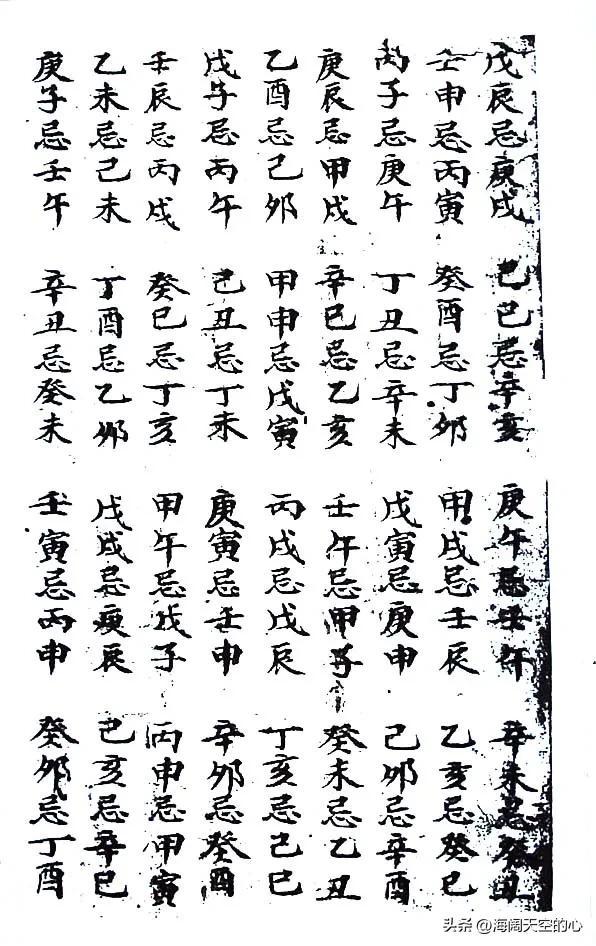 戊辰忌庚戌 己巳忌辛亥 庚午忌壬午 辛未忌癸丑
壬申忌丙寅 癸酉忌丁卯 甲戌忌壬辰 乙亥忌癸巳
丙子忌庚午 丁丑忌辛未 戊寅忌庚申 己卯忌辛酉
庚辰忌甲戌 辛巳忌乙亥 壬午忌甲子 癸未忌乙丑
乙酉忌己卯 甲申忌戊寅 丙戌忌戊辰 丁亥忌己巳
戊子忌丙午 己丑忌丁未 庚寅忌壬申 辛卯忌癸酉
壬辰忌丙戌 癸巳忌丁亥 甲午忌戊子 丙申忌甲寅
乙未忌己未 丁酉忌乙卯 戊戌忌庚辰 己亥忌辛巳
庚子忌壬午 辛丑忌癸未 壬寅忌丙申 癸卯忌丁酉
头条 @海阔天空的心